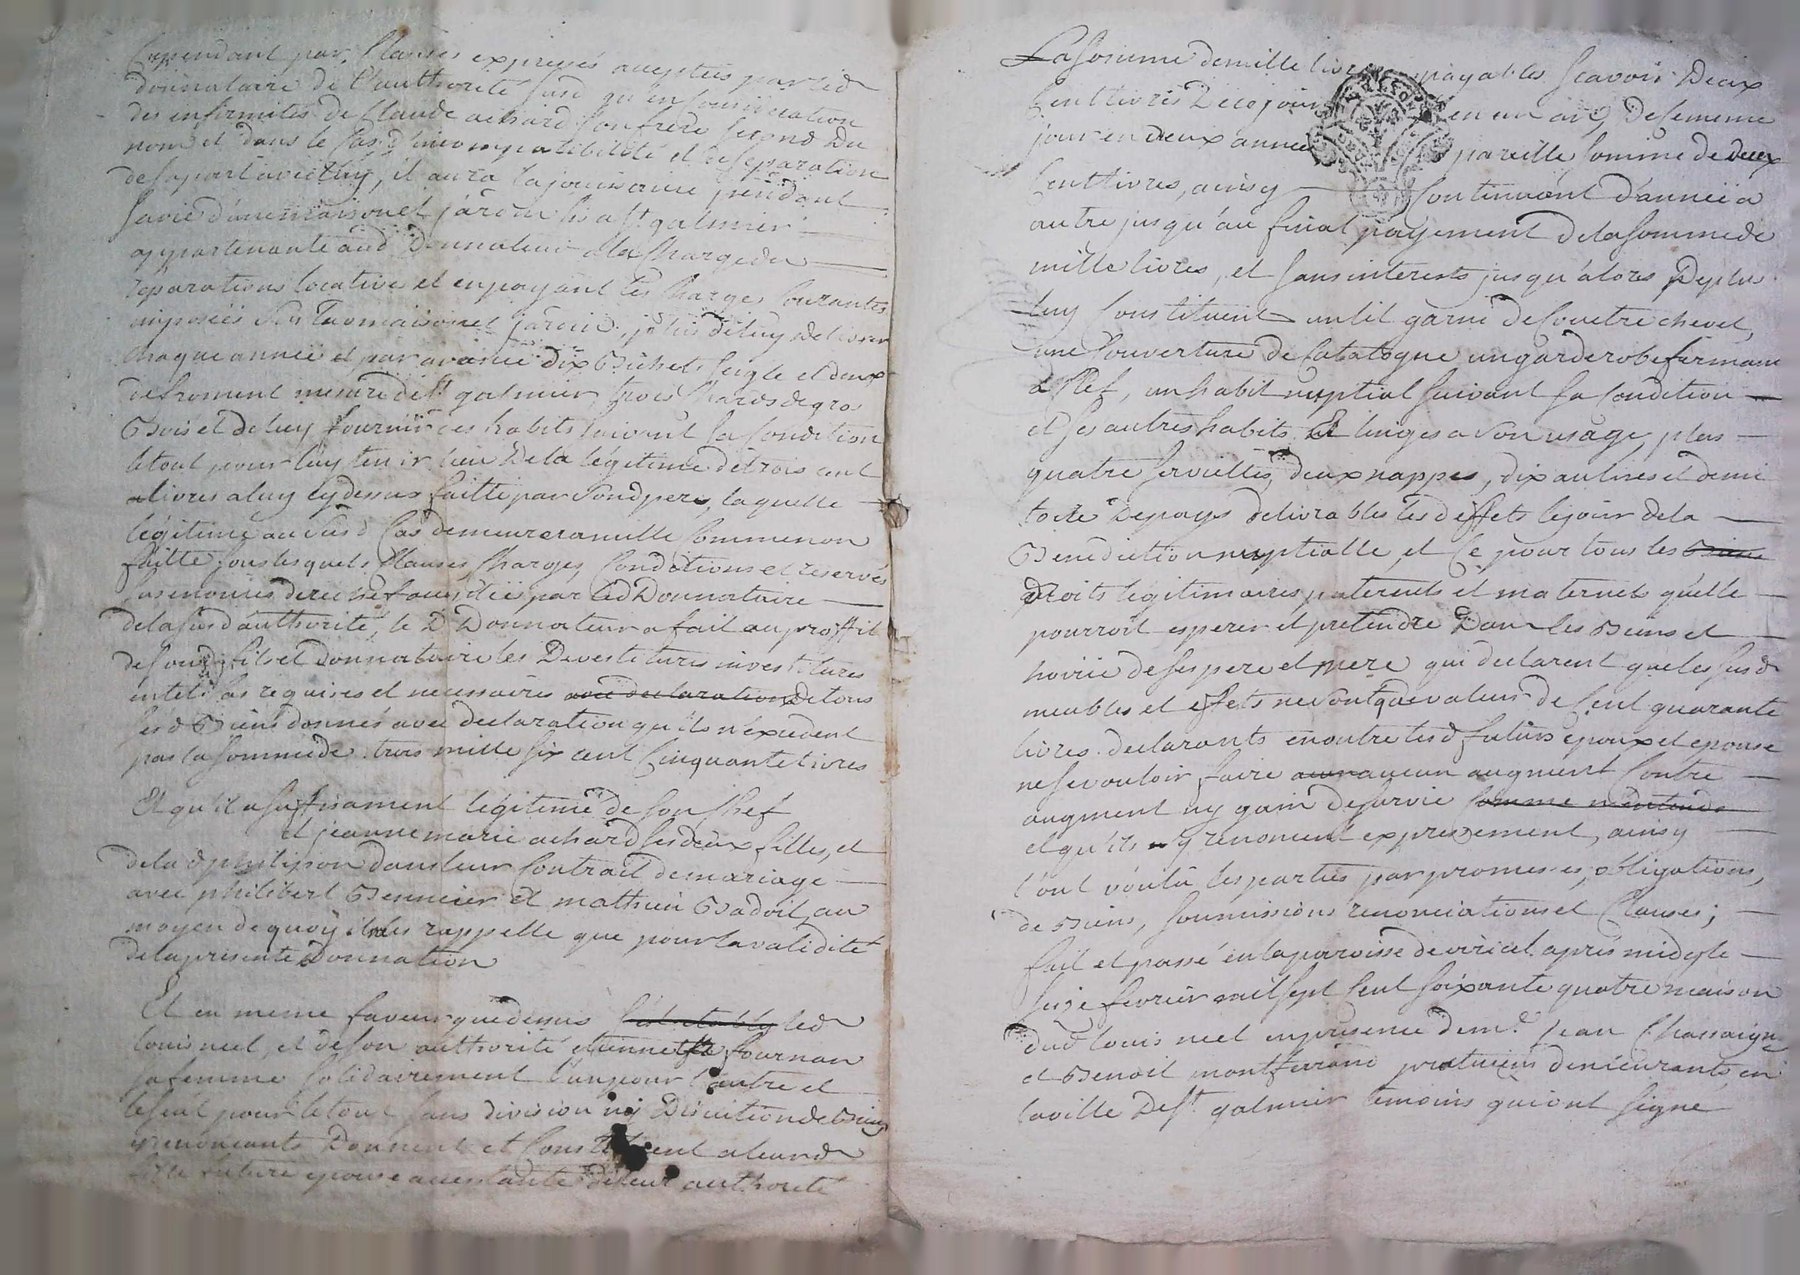 Cependant par Clauses expresses acceptées par led
donnataire de l'authorité susd qu'en consideration
des infirmités de Claude achard son frere second du
nom et dans le Cas d'incompatibilité et de separation
de sa part avec luy, il aura la jouissance pendant
sa vie d'une maison et jardin size a st galmier
appartenante aud Donnateur a la charge des
reparations locative et en payant les Charges Courantes
imposées sur lad maison et jardin, plus de luy delivrer
chaque année et par avance dix Bichets seigle et deux
de froment mesure de st galmier trois Chards de gro
Bois et de luy fournir ces habits suivant sa Condition
le tout pour luy tenir lieu De la légitime de trois cent
livres a luy cy dessus faitte par sond pere, laquelle
légitime au susd Cas demeurera nulle Comme non
faitte sous lesquels Clauses, Charges, Conditions et reserves
de lasusd authorité, le D Donnateur a fait au proffit
de sond fils et Donnataire les Devestitures investitures
en tel Cas requises et necessaires avec declaration De tous
sesd Biens donnés avec declaration qu'ils n'excedent
pas la somme de trois mille six cent Cinquante livres
Et qu'il a suffisament légitimé de son Chef
et jeanne marie achard ses deux filles, et
de lad philipon dans leur Contrat de mariage
avec philibert Bennier et mathieu Badoil, au
moyen de quoy il ne les rappelle que pour la validité
de la presente Donnation
Et en meme faveur que dessus led
louis neel, et de son authorité fournan
sa femme solidairement l'un pour l'autre et
le seul pour le tout sans division ny Discution de Biens
y renonçants Donnent et Constituent a leurd
fille future epouse acceptante de leur authorité
La somme de mille livres payables scavoir Deux
Cent livres De ce jour en un an, De sememe
jour en deux années pareille somme de deux
Cent livres, ainsy Continuant d'année a
autre jusqu'au final payement De la somme de
mille livres, et sans interets jusqu'alors De plus
luy Constituent un lit garni de Couetre chevet,
une Couverture de Catalogne un garderobe fermant
a Clef, un habit nuptial suivant sa Condition
et ses autres habits Et linges a son usage, plus
quatre serviettes, deux nappes, dix aulnes et demi
toile De pays delivrables lesd effets le jour de la
Bénédiction nuptialle, et Ce pour tous les Biens
Droits légitimaires, paternels et maternels qu'elle
pourroit esperer et pretendre Dans les Biens et
hoirie de ses pere et mere qui declarent que les susd
meubles et effets ne sont que valeur de Cent quarante
livres. declarants en outre lesd futurs epoux et epouse
ne se vouloir faire aucun augment Contre
augment ny gain de survie Comme n'entende
et qu'ils y renoncent expressement, ainsy
l'ont voulu les parties par promesses, obligations,
de Biens, soumissions renonciations et Clauses;
fait et passé en la paroisse de viricel après midy le
seize fevrier mil sept Cent soixante quatre maison
dud louis neel en presence de me. jean Chassaigne
et Benoit montferrand praticiens demeurants en
la ville De st galmier temoins qui ont signe